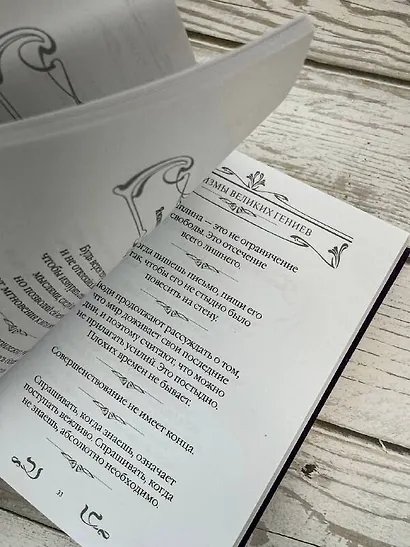 Будь
и не
чтобы
но позволи
АЗМЫ ВЕЛИКИХ ГЕНИЕВ
плина — это не ограничение
свободы. Это отсечение
всего лишнего.
огда пишешь письмо, пиши его
так, чтобы его не стыдно было
повесить на стену.
юди продолжают рассуждать о том,
что мир доживает свои последние
дни, и поэтому считают, что можно
не прилагать усилий. Это постыдно.
Плохих времен не бывает.
Совершенствование не имеет конца.
Спрашивать, когда знаешь, означает
поступать вежливо. Спрашивать, когда
не знаешь, абсолютно необходимо.
33